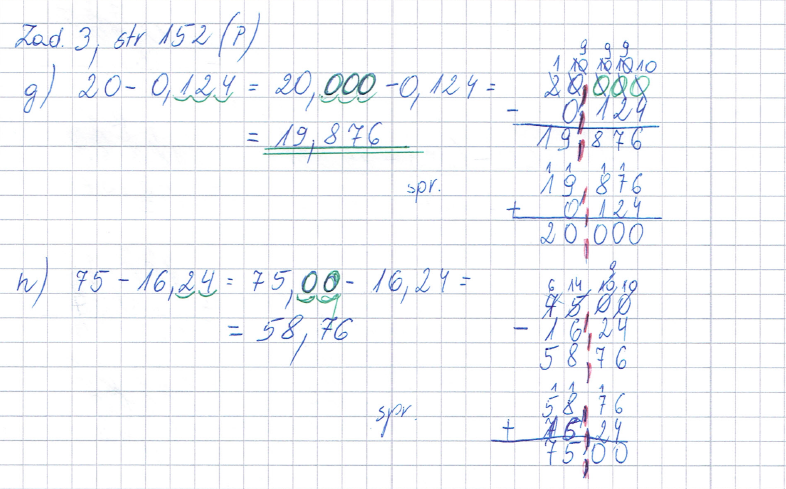 Zad. 3, str 152 (P)
g) 20 - 0,124 = 20,000 - 0,124 =
= 19,876
9 9 9
1 10 10 10 10
20,000
- 0,124
19,876
spr.
1 1 1 1
19,876
+ 0,124
20,000
h) 75 - 16,24 = 75,00 - 16,24 =
= 58,76
9
6 14 10 10
75,00
- 16,24
58,76
spr.
1 1 1
58,76
+ 16,24
75,00